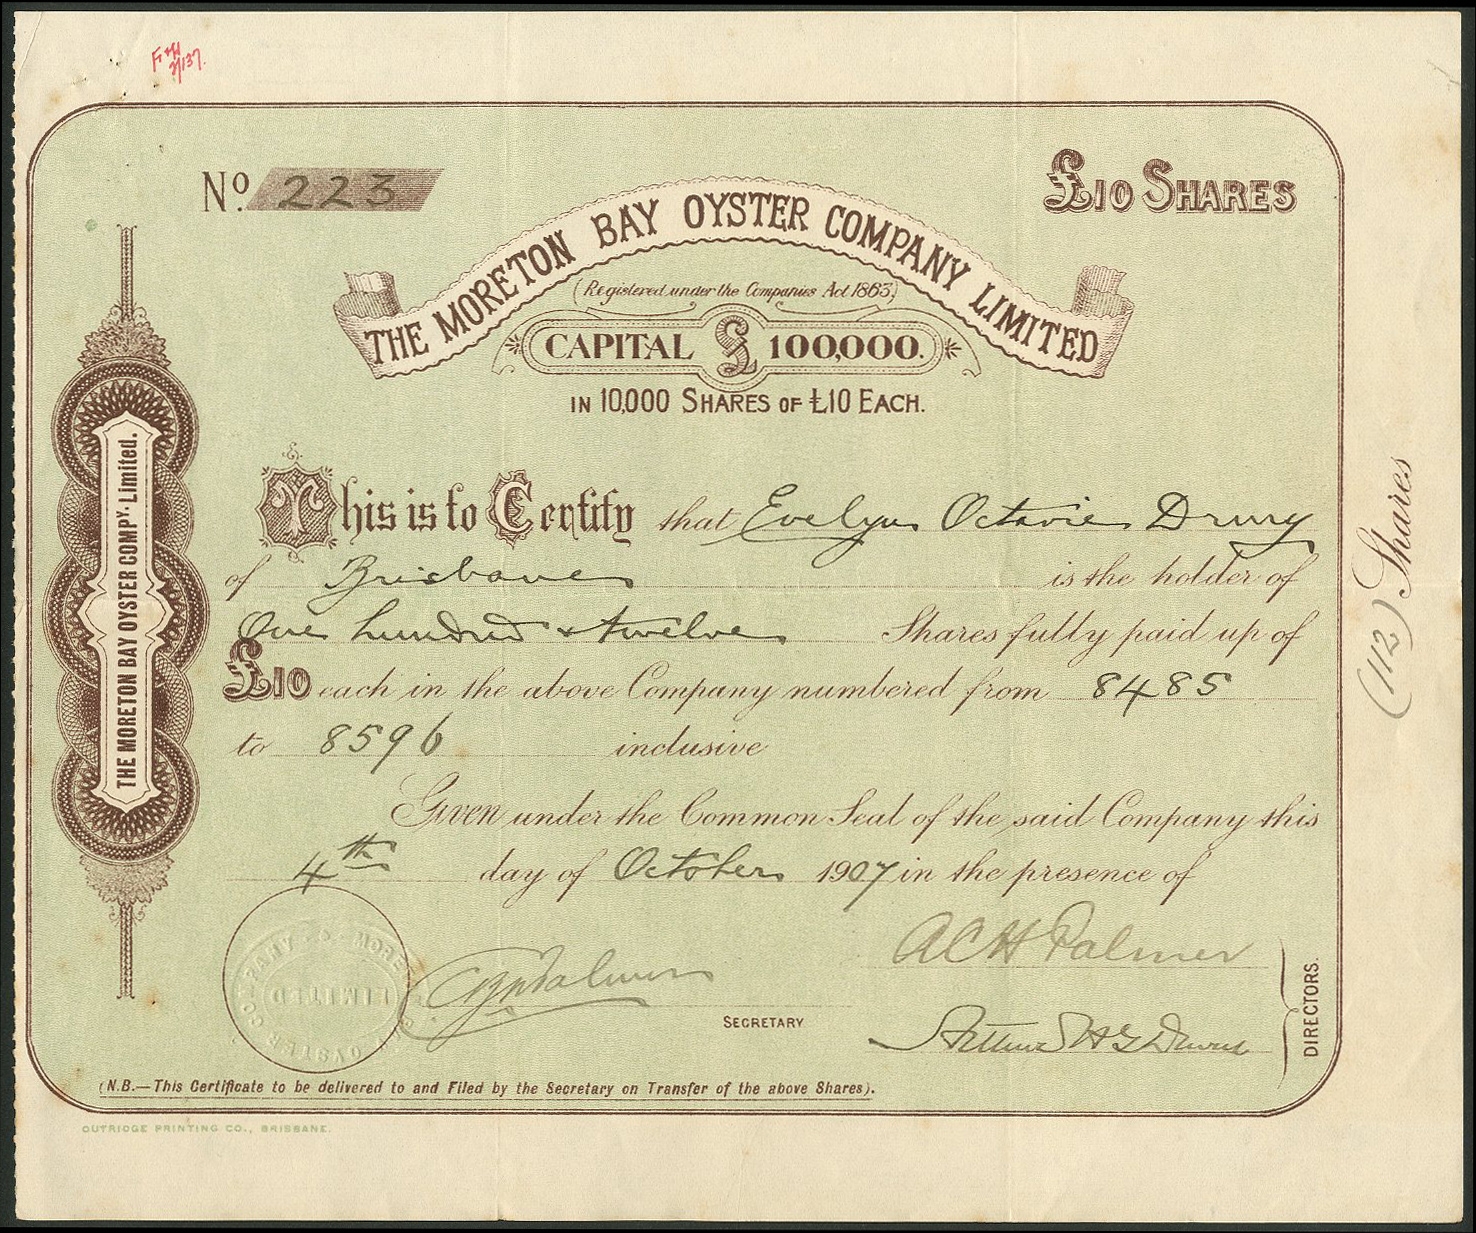 No. 223
£10 SHARES
THE MORETON BAY OYSTER COMPANY LIMITED
(Registered under the Companies Act 1863)
CAPITAL £ 100,000.
IN 10,000 SHARES OF £10 EACH.
This is to Certify that Evelyn Octavie Drury
of Brisbane is the holder of
One hundred & twelve Shares fully paid up of
£10 each in the above Company numbered from 8485
to 8596 inclusive
Given under the Common Seal of the said Company this
4th day of October 1907 in the presence of
A C H Palmer
SECRETARY
DIRECTORS.
(N.B.—This Certificate to be delivered to and Filed by the Secretary on Transfer of the above Shares).
OUTRIDGE PRINTING CO., BRISBANE.
THE MORETON BAY OYSTER COMPY. Limited.
(112) Shares
MORETON BAY OYSTER COMPANY
LIMITED